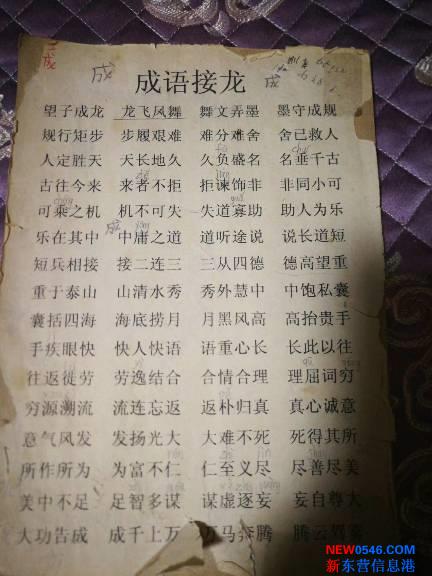 成
成
成
成语接龙
望子成龙 龙飞风舞 舞文弄墨 墨守成规
规行矩步 步履艰难 难分难舍 舍己救人
人定胜天 天长地久 久负盛名 名垂千古
古往今来 来者不拒 拒谏饰非 非同小可
可乘之机 机不可失 失道寡助 助人为乐
乐在其中 中庸之道 道听途说 说长道短
短兵相接 接二连三 三从四德 德高望重
重于泰山 山清水秀 秀外慧中 中饱私囊
囊括四海 海底捞月 月黑风高 高抬贵手
手疾眼快 快人快语 语重心长 长此以往
往返徒劳 劳逸结合 合情合理 理屈词穷
穷源溯流 流连忘返 返朴归真 真心诚意
意气风发 发扬光大 大难不死 死得其所
所作所为 为富不仁 仁至义尽 尽善尽美
美中不足 足智多谋 谋虚逐妄 妄自尊大
大功告成 成千上万 万马奔腾 腾云驾雾
NEW0546.COM
新东营信息港